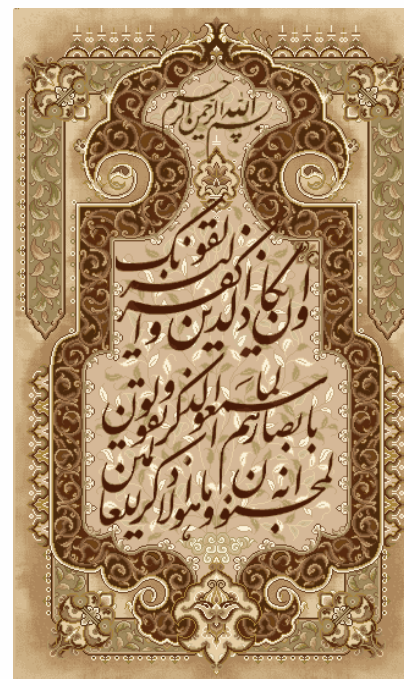 بسم الله الرحمن الرحیم
وان یکاد الذین کفروا لیزلقونک
بابصارهم لما سمعوا الذکر ویقولون
انه لمجنون وما هو الا ذکر للعالمین